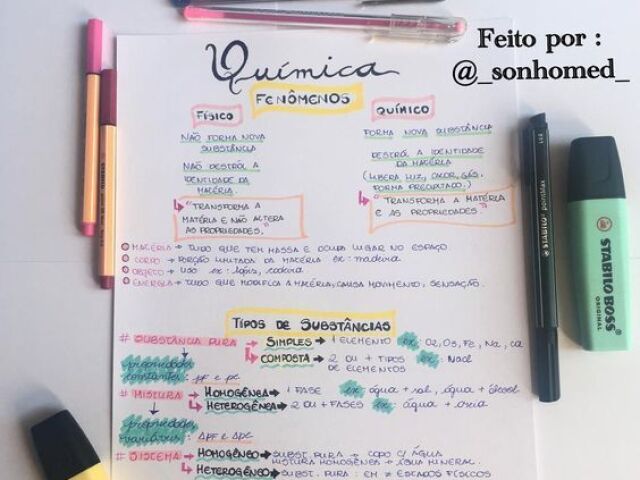 Feito por :
@_sonhomed_
Química
FENÔMENOS
FÍSICO
QUÍMICO
NÃO FORMA NOVA
SUBSTÂNCIA
NÃO DESTRÓI A
IDENTIDADE DA
MATÉRIA.
"TRANSFORMA A
MATÉRIA E NÃO ALTERA
AS PROPRIEDADES."
FORMA NOVA SUBSTÂNCIA
DESTRÓI A IDENTIDADE
DA MATÉRIA
(LIBERA LUZ, CALOR, GÁS,
FORMA PRECIPITADO.)
"TRANSFORMA A MATÉRIA
E AS PROPRIEDADES."
MATÉRIA → TUDO QUE TEM MASSA E OCUPA LUGAR NO ESPAÇO.
CORPO → PORÇÃO LIMITADA DA MATÉRIA ex: madeira
OBJETO → USO ex: lápis, cadeira
ENERGIA → TUDO QUE MODIFICA A MATÉRIA, CAUSA MOVIMENTO, SENSAÇÃO.
TIPOS DE SUBSTÂNCIAS
# SUBSTÂNCIA PURA → SIMPLES → 1 ELEMENTO ex: O2, O3, Fe, Na, Ca
COMPOSTA → 2 OU + TIPOS DE ELEMENTOS ex: Nacl
propriedades
constantes: pf e pe
# MISTURA → HOMOGÊNEA → 1 FASE ex: água + sal, água + álcool
HETEROGÊNEA → 2 OU + FASES ex: água + areia
propriedades
variáveis: Δpf e Δpe
# SISTEMA → HOMOGÊNEO → SUBST. PURA → COPO C/ ÁGUA
MISTURA HOMOGÊNEA → ÁGUA MINERAL.
HETEROGÊNEO → SUBST. PURA: EM ≠ ESTADOS FÍSICOS
STABILO pointMax
STABILO BOSS
ORIGINAL